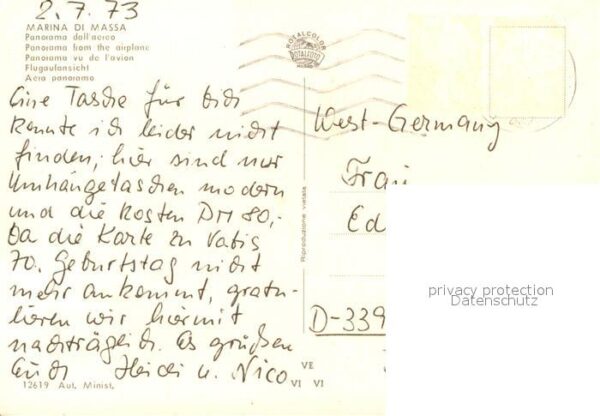 2.7.73
MARINA DI MASSA
Panorama dall'aereo
Panorama from the airplane
Panorama vu de l'avion
Flugaufansicht
Aero panorama
ROTALCOLOR
ROTALFOTO
Eine Tasche für dich
konnte ich leider nicht
finden, hier sind nur
Umhängetaschen modern
und die kosten DM 80,-
Da die Karte zu Vatis
70. Geburtstag nicht
mehr ankommt, gratu-
lieren wir hiermit
nachträglich. Es grüßen
Euch Heidi u. Nico
12619 Aut. Minist.
VE
VI VI
Riproduzione vietata
West-Germany
Frau
Ed
D-339
privacy protection
Datenschutz